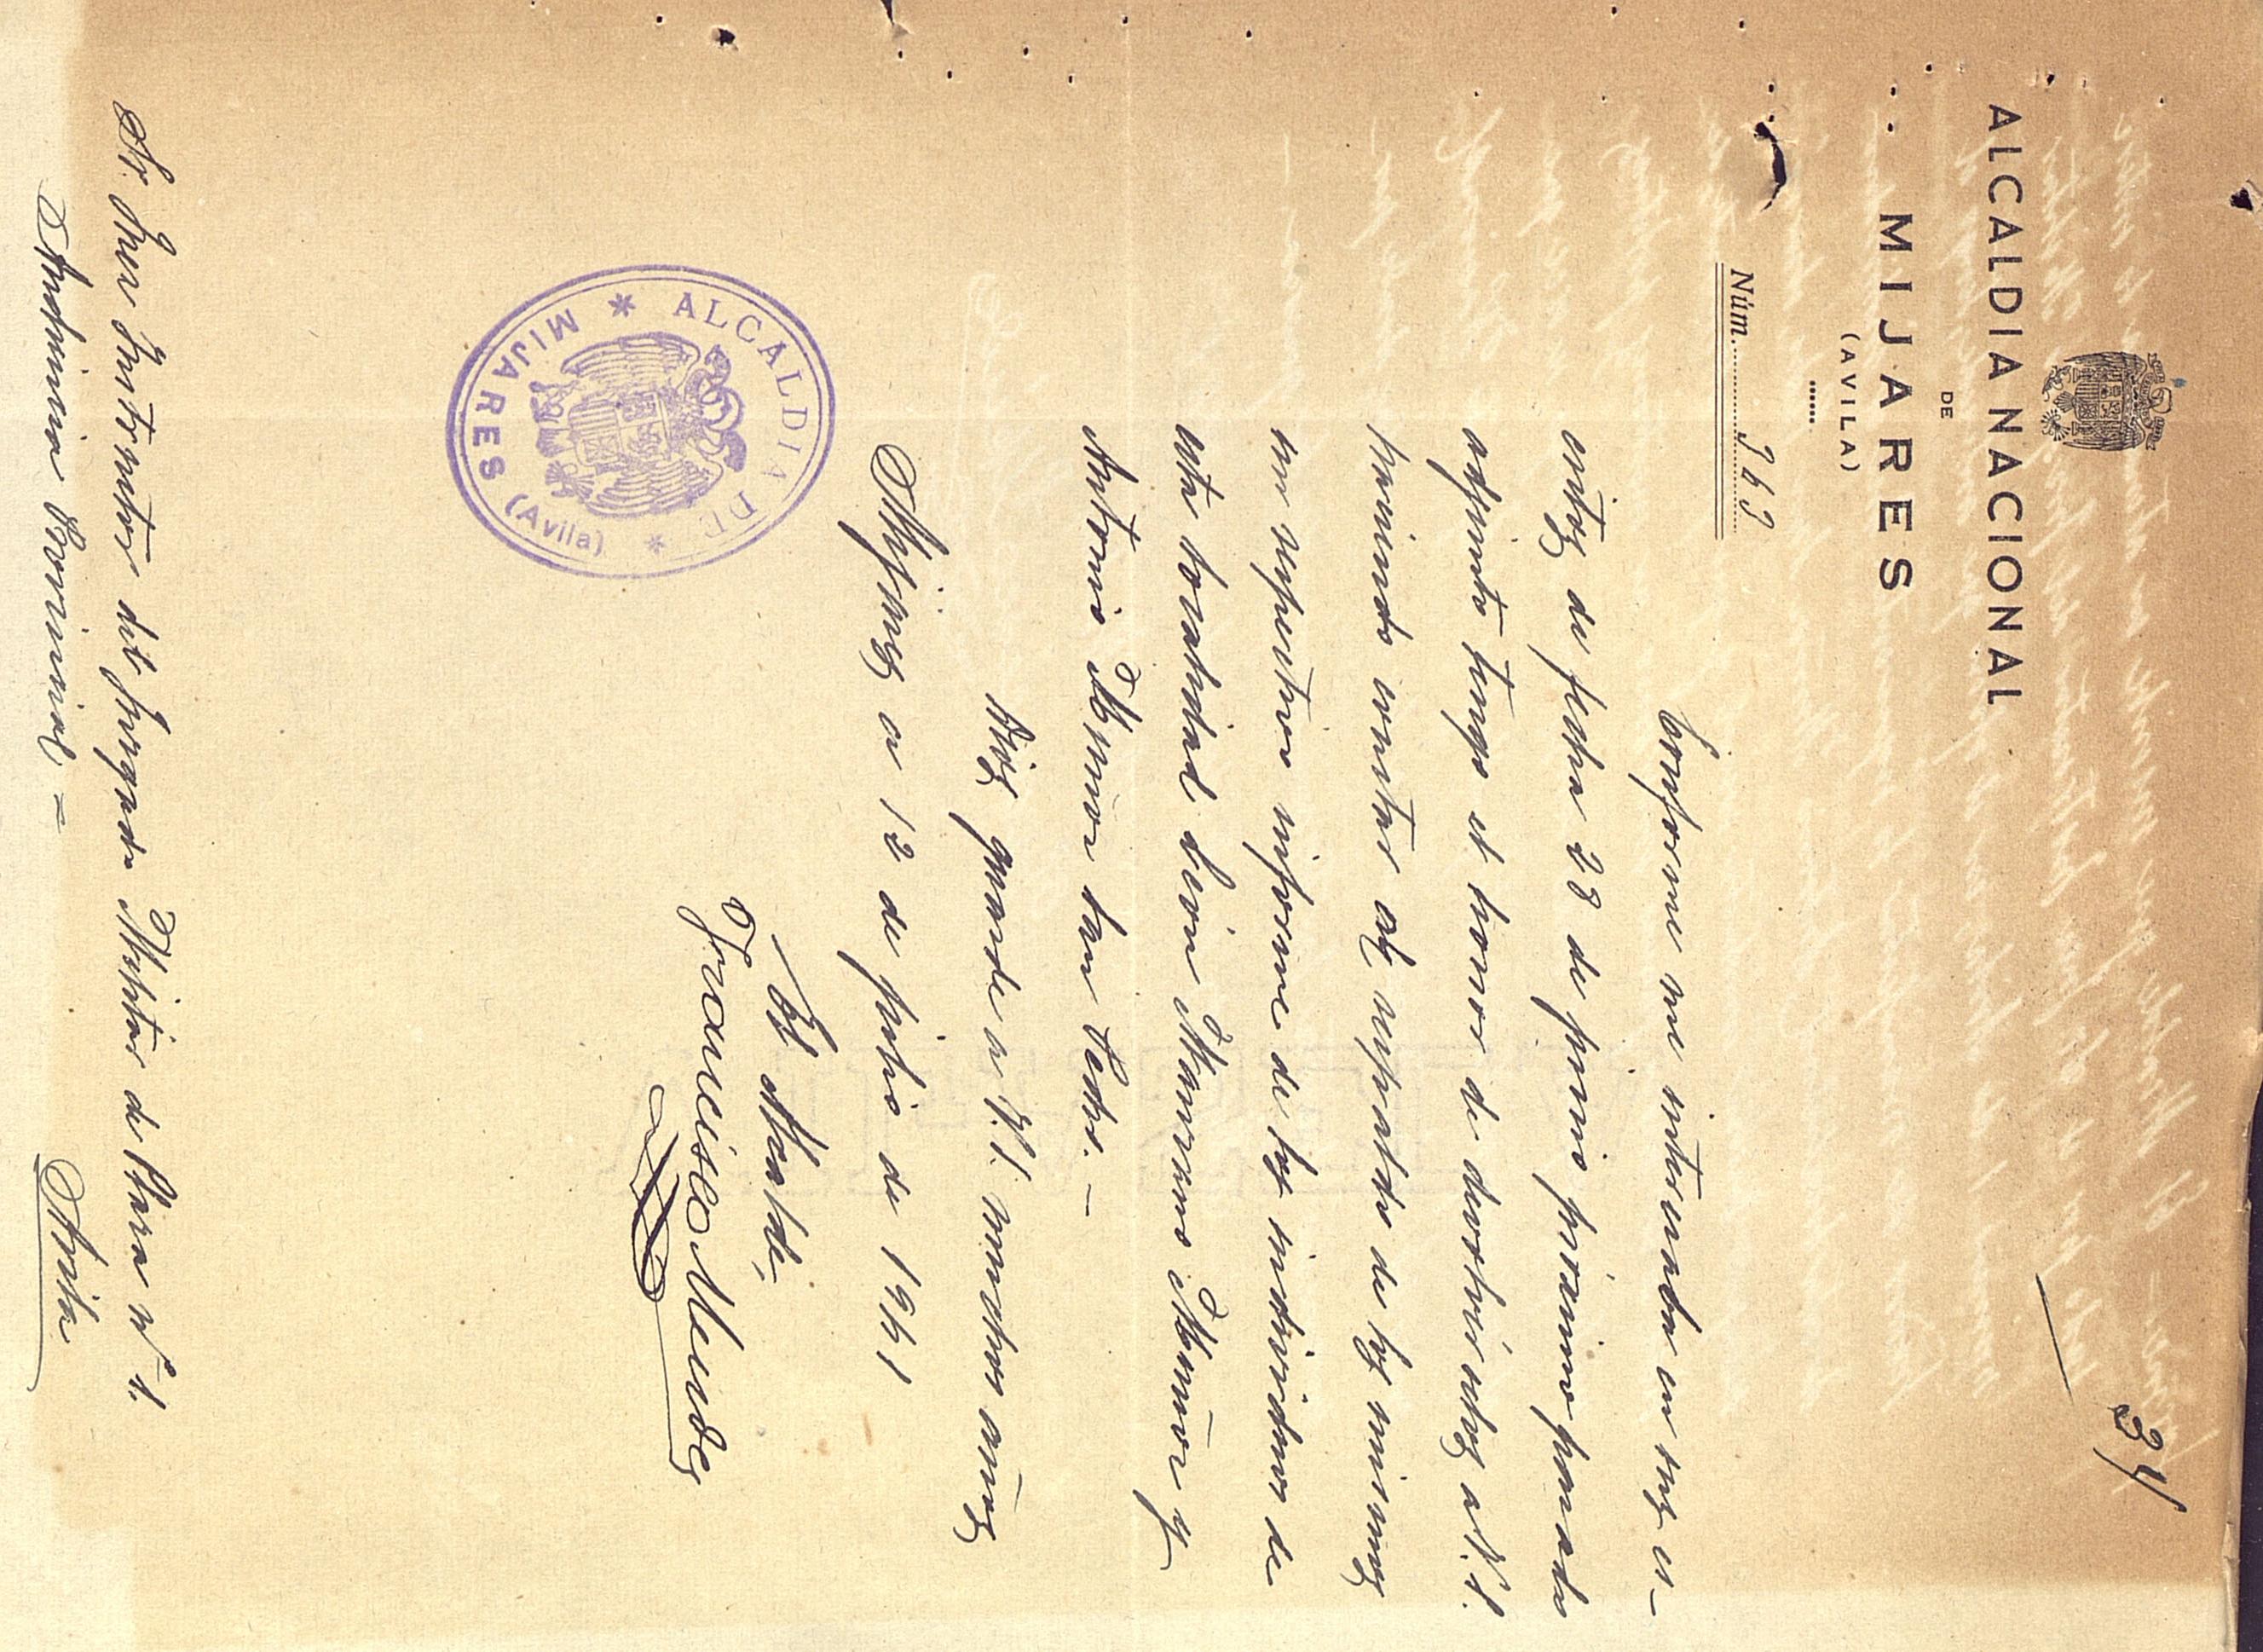 34
ALCALDIA NACIONAL
DE
MIJARES
(AVILA)
Núm. 363
Conforme me interesaba en sus es-
critos de fecha 28 de junio próximo pasado
adjunto tengo el honor de devolver a V.S.
haciendo constar al respaldo de los mismos
mi respectivo informe de los individuos de
esta localidad León Maurino Muñoz y
Antonio Muñoz San Pedro. -
Dios guarde a V.S. muchos años
Mijares a 12 de julio de 1941
El Alcalde,
Francisco Mendez
ALCALDIA DE
MIJARES (Avila)
Sr. Juez Instructor del Juzgado Militar de Plaza nº 1.
Audiencia Provincial =
Avila